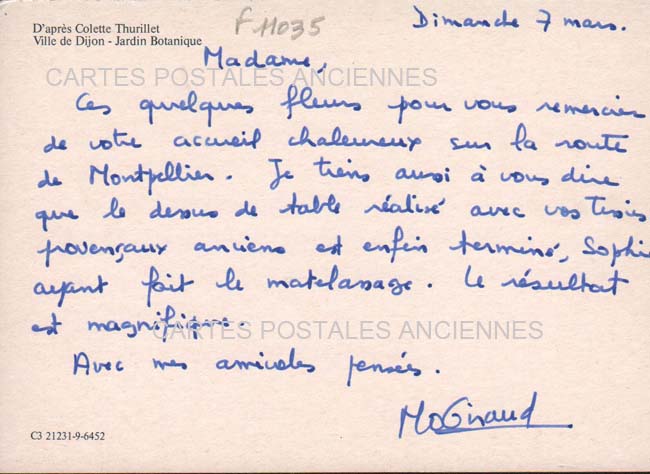 D'après Colette Thurillet
Ville de Dijon - Jardin Botanique
F 11035
Dimanche 7 mars.
Madame,
CARTES POSTALES ANCIENNES
Ces quelques fleurs pour vous remercier
de votre accueil chaleureux sur la route
de Montpellier. Je tiens aussi à vous dire
que le dessus de table réalisé avec vos tissus
provençaux anciens est enfin terminé, Sophie
ayant fait le matelassage. Le résultat
est magnifique.
CARTES POSTALES ANCIENNES
Avec mes amicales pensées.
MOGiraud
C3 21231-9-6452